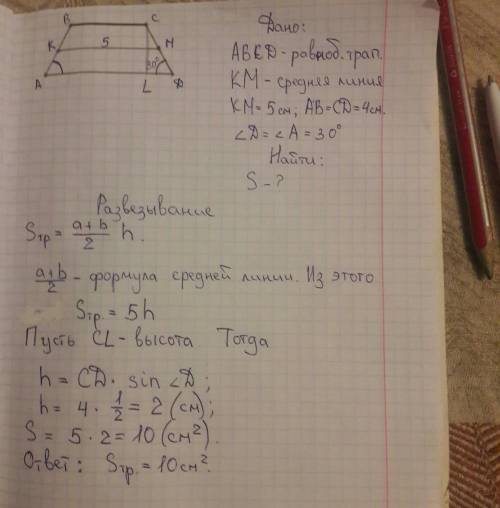 B C
K 5 M
A 30° L D
Дано:
ABCD - равноб. трап.
KM - средняя линия
KM = 5 см; AB = CD = 4 см.
∠D = ∠A = 30°
Найти:
S - ?
Развезывание
Sтр = a+b/2 h.
a+b/2 - формула средней линии. Из этого
Sтр. = 5h
Пусть CL - высота. Тогда
h = CD · sin ∠D;
h = 4 · 1/2 = 2 (см);
S = 5 · 2 = 10 (см²).
Ответ: Sтр. = 10 см².